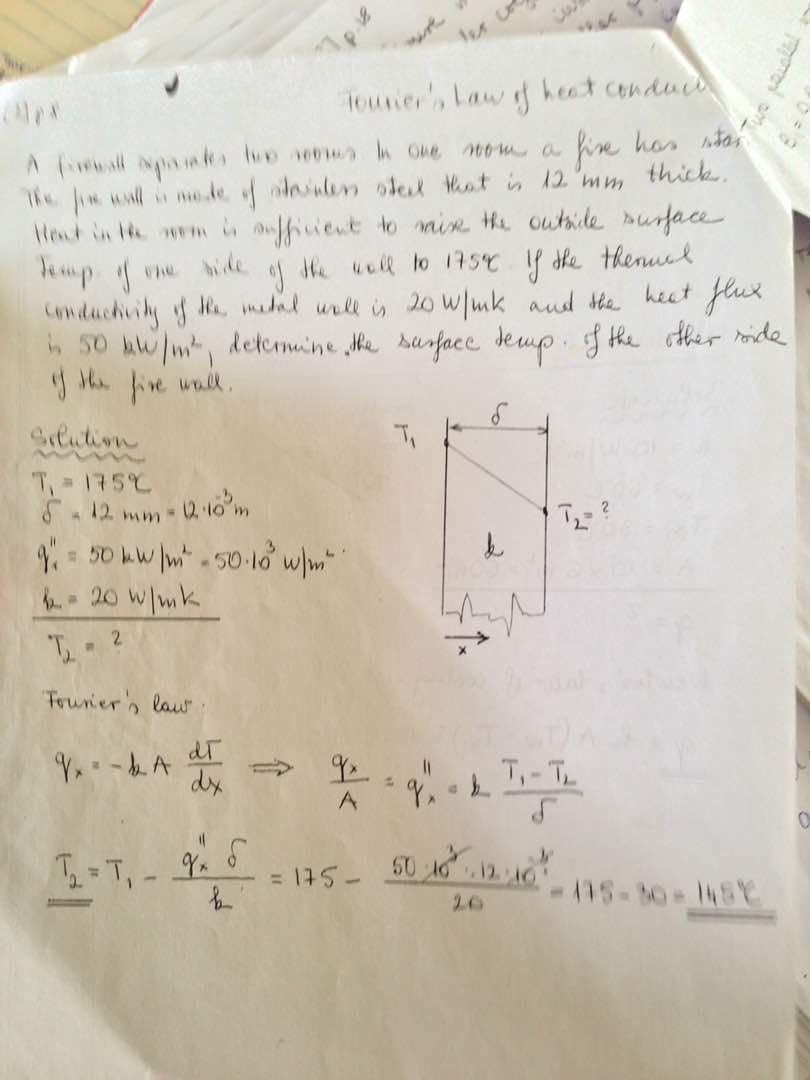 Fourier's Law of heat conduc
A firewall separates two rooms In one room a fire has star
The fire wall is made of stainless steel that is 12 mm thick.
Heat in the room is sufficient to raise the outside surface
temp. of one side of the wall to 175℃ If the thermal
conductivity of the metal wall is 20 W/mk and the heat flux
is 50 kW/m², determine the surface temp. of the other side
of the fire wall.
Solution
T₁ = 175℃
δ = 12 mm = 12·10⁻³m
q″ₓ = 50 kW/m² = 50·10³ W/m²
k = 20 W/mk
T₂ = ?
T₁
δ
T₂ = ?
k
x
Fourier's law.
qₓ = -k A dT/dx ⟹ qₓ/A = q″ₓ = k (T₁ - T₂)/δ
T₂ = T₁ - q″ₓ δ/k = 175 - 50·10³·12·10⁻³/20 = 175 - 30 = 145℃
Two parallel